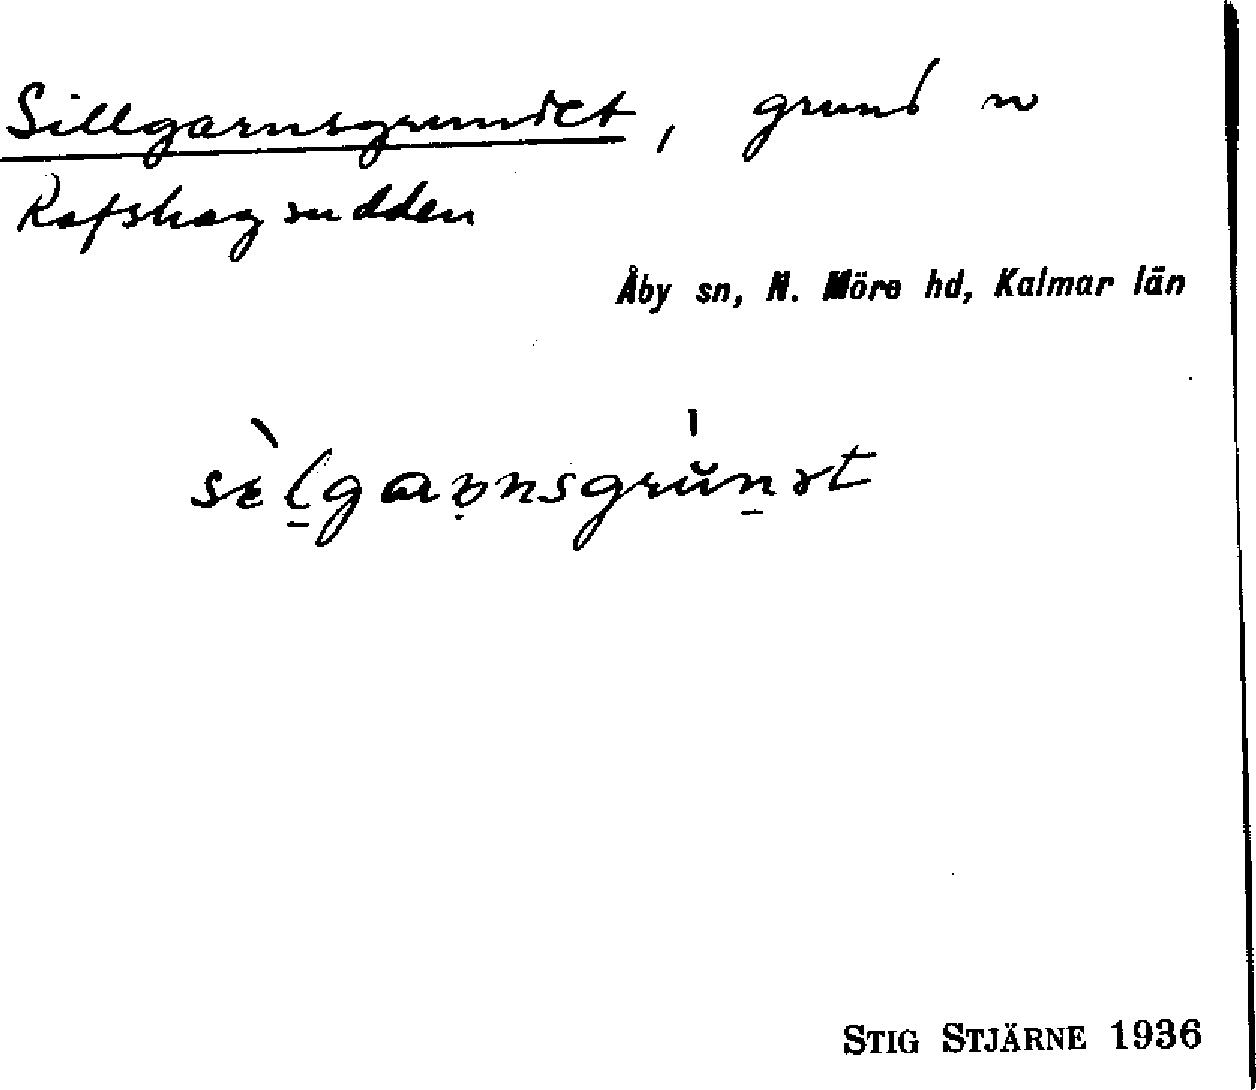 Sillgarnsgrundet, grund n
Rafshagsudden
Åby sn, N. Möre hd, Kalmar län
STIG STJÄRNE 1936